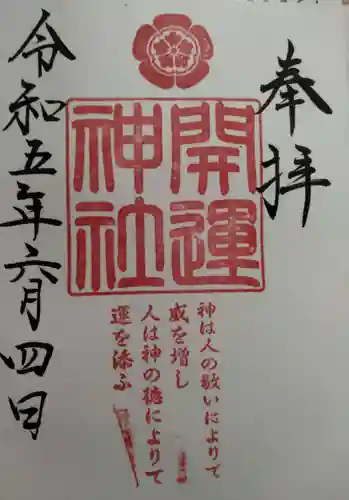 奉拝
開運
神社
神は人の敬いによりて
威を増し
人は神の徳によりて
運を添ふ
令和五年六月四日